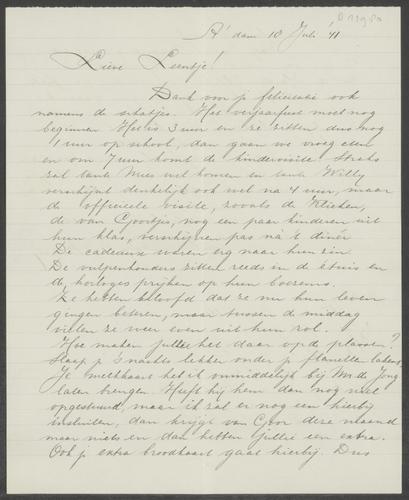 A'dam 10 Juli '41
Lieve Leentje!
Dank voor je felicitatie ook
namens de schatjes. Het verjaarfeest moet nog
beginnen. Het is 3 uur en ze zitten dus nog
1 uur op school, dan gaan we vroeg eten
en om 7 uur komt de kindervisite. Straks
zal tante Mies wel komen en tante Willy
verschijnt denkelijk ook wel na 4 uur, maar
de officieele visite, zooals de
de van Goortjes, nog een paar kinderen uit
hun klas, verschijnen pas na 't diner.
De cadeaux waren erg naar hun zin.
De vulpenhouders zitten reeds in de etuis en
de horloges prijken op hun boezems.
Ze hebben beloofd dat ze nu hun leven
gingen beteren, maar tusschen de middag
vielen ze weer even uit hun rol.
Hoe maken jullie het daar op de plassen?
Slaap je 's nachts lekker onder je flanellen lakens
Je melkkaart heb ik onmiddelijk bij Mr. de Jong
laten brengen. Heeft hij hem dan nog niet
opgestuurd, maar ik zal er nog een hierbij
insluiten, dan krijgt van Goor deze maand
maar niets en dan hebben jullie een extra.
Ook je extra broodkaart gaat hierbij. Dus